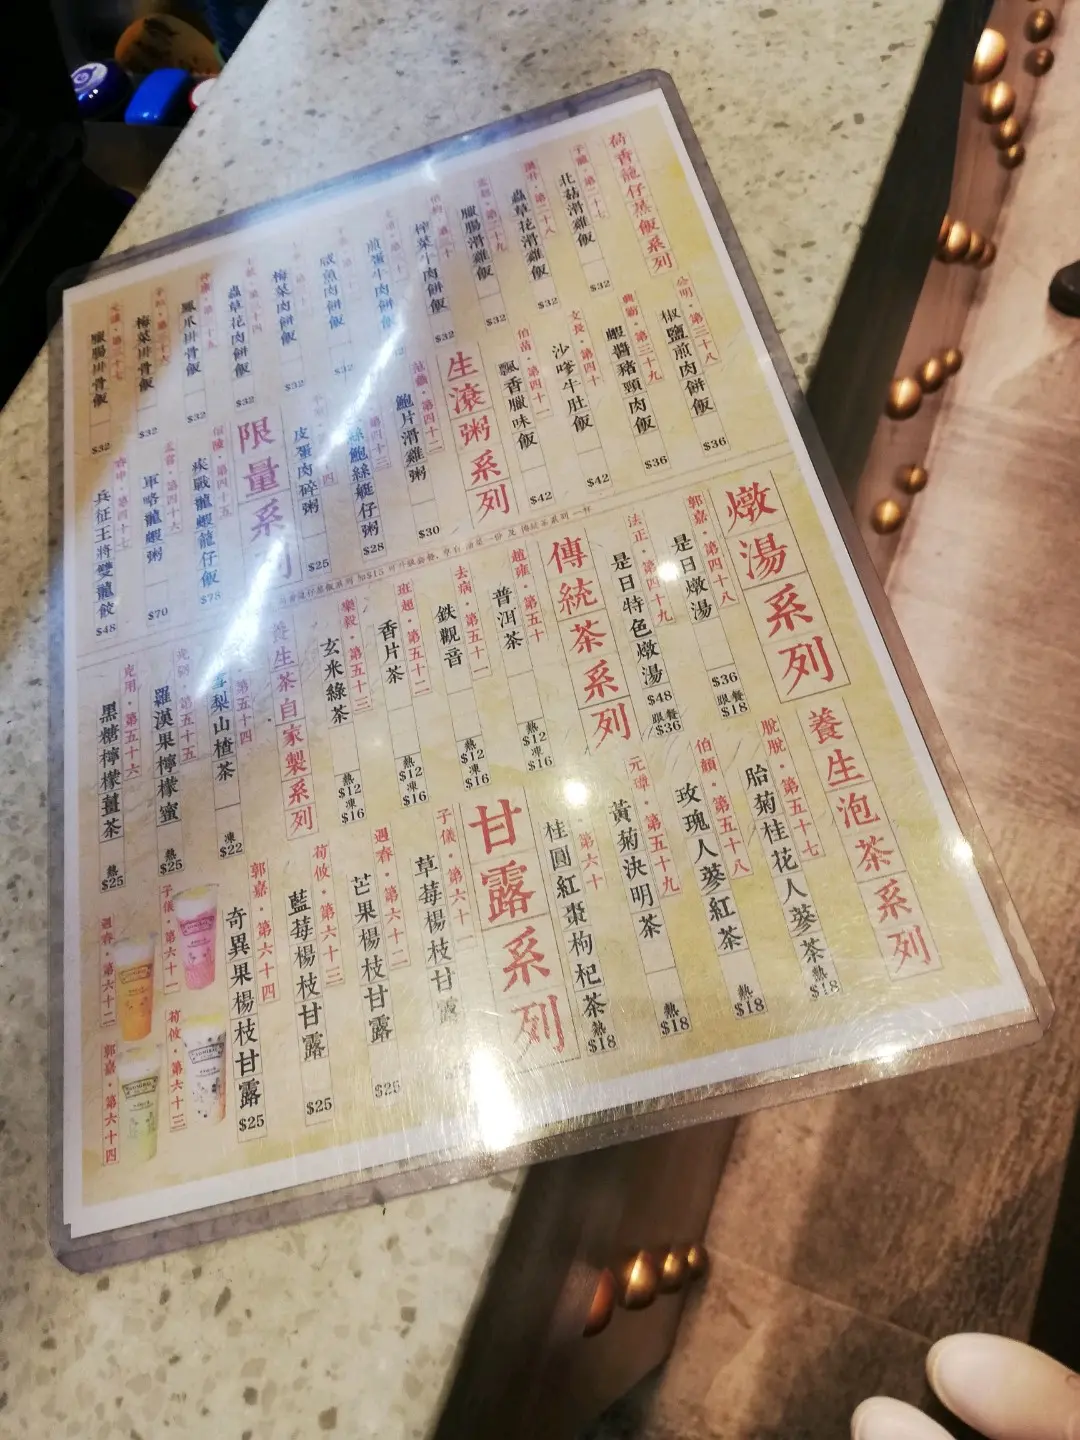 荷香龍仔蒸飯系列
第二十七
北菇滑雞飯
$32
第二十八
蟲草花滑雞飯
$32
第二十九
臘腸滑雞飯
$32
榨菜牛肉餅飯
$32
煎蛋牛肉餅飯
咸魚肉餅飯
$32
梅菜肉餅飯
$32
蟲草花肉餅飯
$32
鳳爪排骨飯
$32
梅菜排骨飯
$32
第三十七
臘腸排骨飯
$32
孔明·第三十八
椒鹽煎肉餅飯
$36
典韋·第三十九
蝦醬豬頸肉飯
$36
文長·第四十
沙嗲牛肚飯
$42
伯苗·第四十一
飄香臘味飯
$42
生滾粥系列
范蠡·第四十二
鮑片滑雞粥
$30
第四十三
絲鮑絲艇仔粥
$28
皮蛋肉碎粥
$25
限量系列
信陵·第四十五
疾戰龍蝦龍仔飯
$78
孟嘗·第四十六
軍略龍蝦粥
$70
春申·第四十七
兵征王將雙龍餃
$48
燉湯系列
郭嘉·第四十八
是日燉湯
$36
跟餐
$18
法正·第四十九
是日特色燉湯
$48
跟餐
$36
傳統茶系列
趙雍·第五十
普洱茶
熱
$12
凍
$16
去病·第五十一
鉄觀音
熱
$12
凍
$16
班超·第五十二
香片茶
熱
$12
凍
$16
樂毅·第五十三
玄米綠茶
熱
$12
凍
$16
養生茶自家製系列
第五十四
雪梨山楂茶
凍
$22
光弼·第五十五
羅漢果檸檬蜜
熱
$25
克用·第五十六
黑糖檸檬薑茶
熱
$25
養生泡茶系列
脫脫·第五十七
胎菊桂花人蔘茶
熱
$18
伯顏·第五十八
玫瑰人蔘紅茶
熱
$18
元璋·第五十九
黃菊決明茶
熱
$18
第六十
桂圓紅棗枸杞茶
熱
$18
甘露系列
子儀·第六十一
草莓楊枝甘露
週春·第六十二
芒果楊枝甘露
$25
荀攸·第六十三
藍莓楊枝甘露
$25
郭嘉·第六十四
奇異果楊枝甘露
$25
子儀·第六十一
週春·第六十二
荀攸·第六十三
郭嘉·第六十四